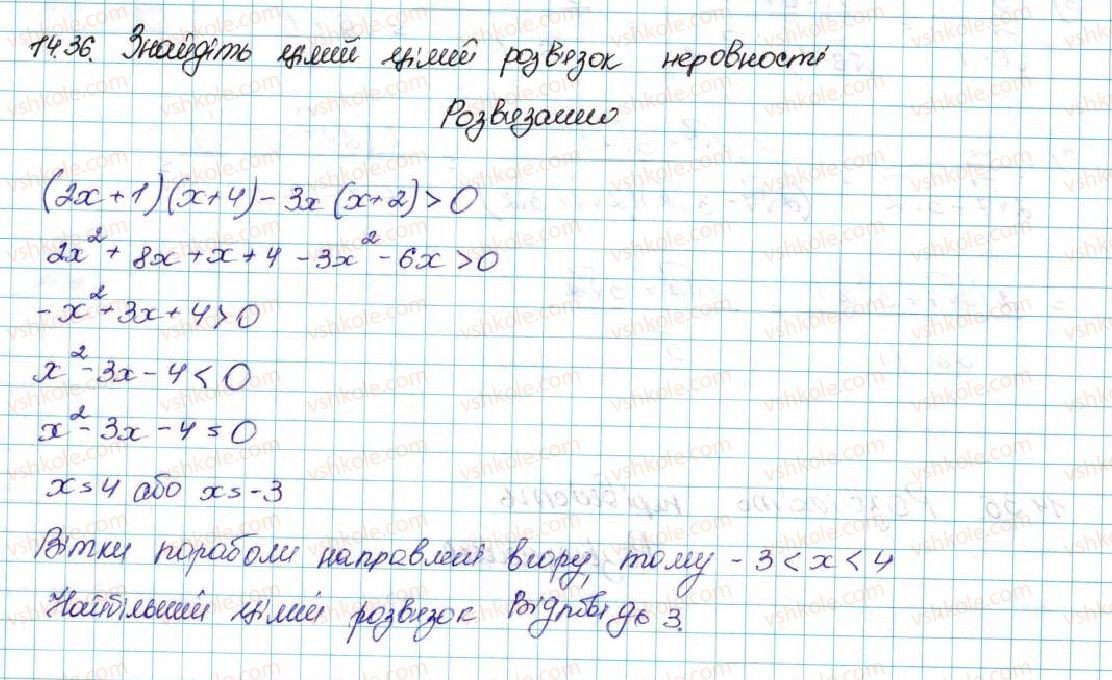 14.36. Знайдіть цілий цілий розвязок неровності
Розвязанно
(2x+1)(x+4)-3x(x+2)>0
2x²+8x+x+4-3x²-6x>0
-x²+3x+4>0
x²-3x-4<0
x²-3x-4=0
x=4 або x=-3
Вітки пораболи направлені вгору, тому -3<x<4
Найбільший цілий розвязок Відповідь 3.